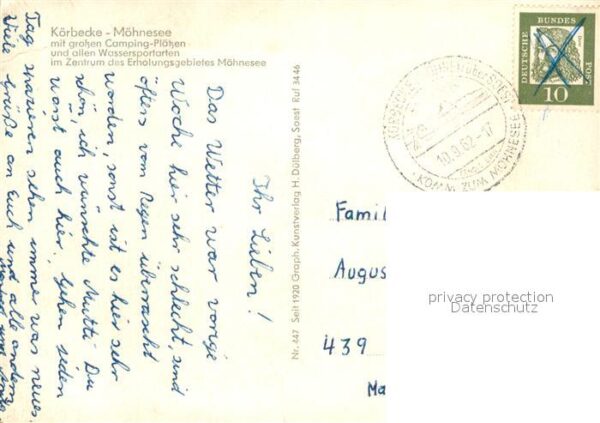 Körbecke - Möhnesee
mit großen Camping-Plätzen
und allen Wassersportarten
im Zentrum des Erholungsgebietes Möhnesee
Ihr Lieben!
Das Wetter war vorige
Woche hier sehr schlecht, sind
öfters vom Regen überrascht
worden, sonst ist es hier sehr
schön, ich wünschte Mutti Du
wärst auch hier. Gehen jeden
Tag spazieren, sehn immer was neues.
Viele Grüße an Euch und alle andern
Nr. 447 Seit 1920 Graph. Kunstverlag H. Dülberg, Soest Ruf 3446
über SOEST
10.9.62-17
KOMM ZUM MÖHNESEE
DEUTSCHE
BUNDES
POST
10
Famil
August
439
Ma
privacy protection
Datenschutz